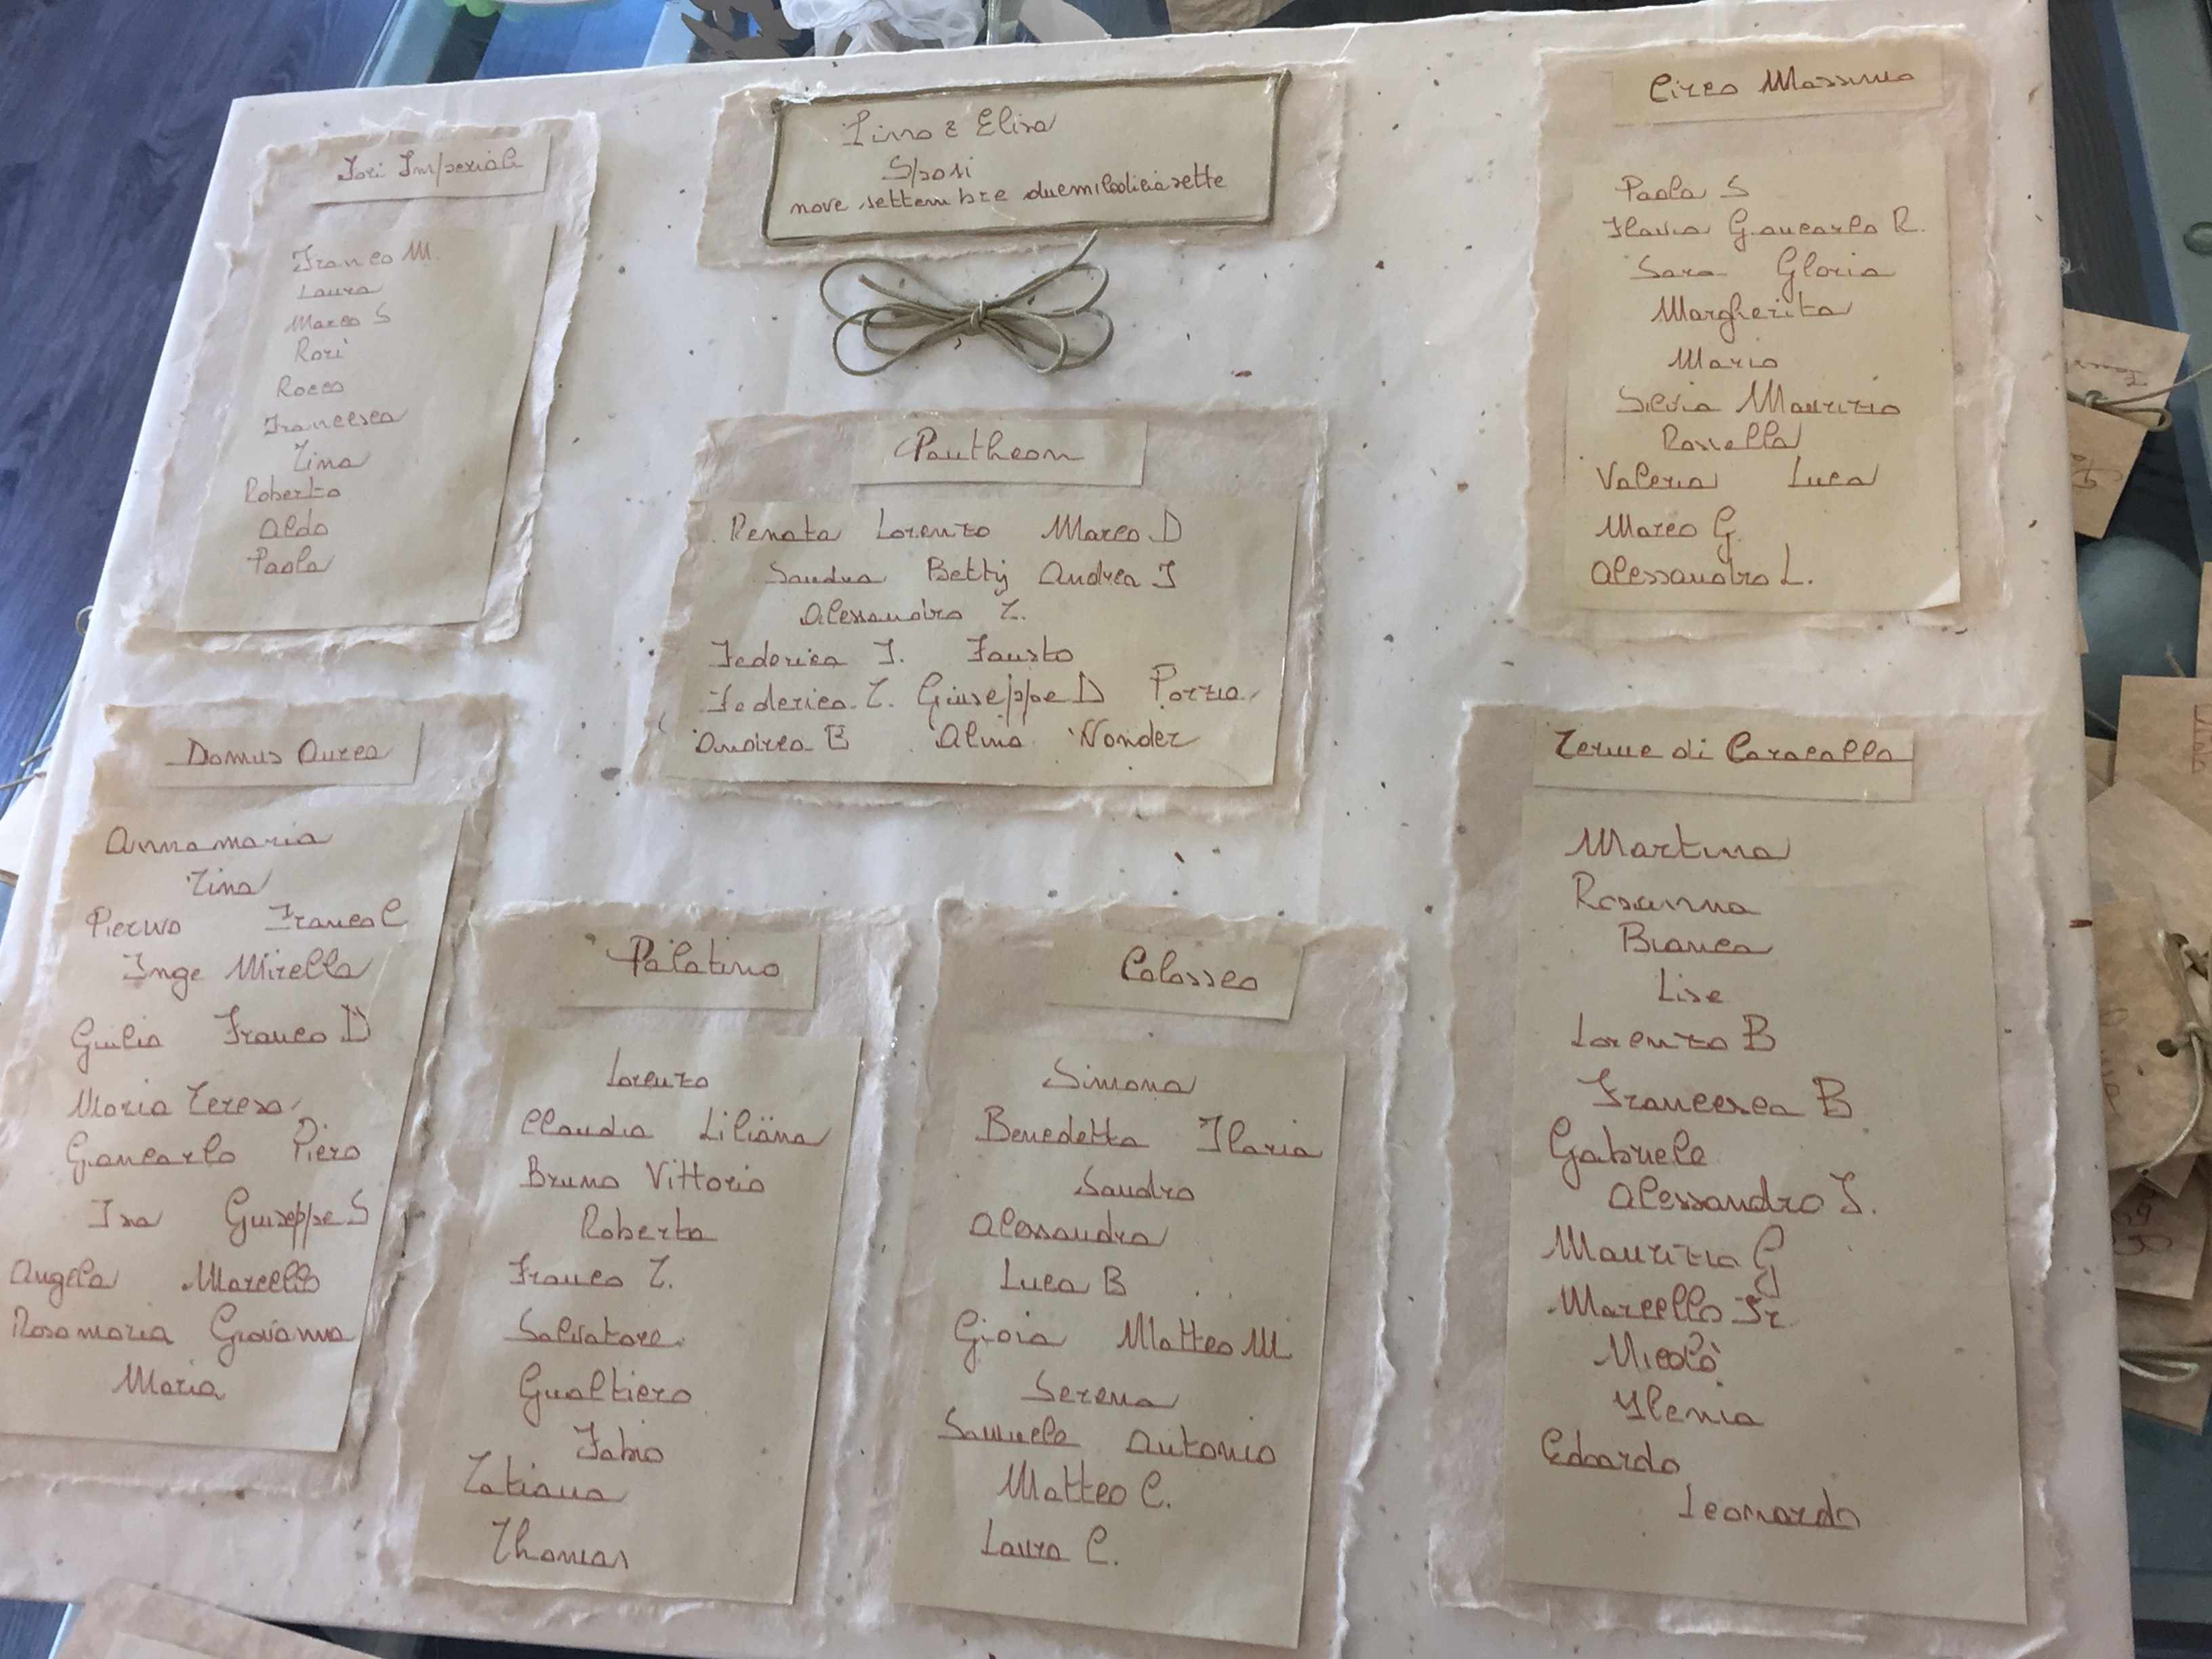 Pirro e Elisa
Sposi
nove settembre duemiladiciassette
Fori Imperiali
Franco M.
Laura
Marco S
Rori
Rocco
Francesca
Tina
Roberto
Aldo
Paola
Pantheon
Renata Lorenzo Marco D
Sandra Betty Andrea F
Alessandro Z.
Federica F. Fausto
Federica Z. Giuseppe D Porzia
Andrea B Alina Wonder
Circo Massimo
Paola S
Flavia Giancarlo R.
Sara Gloria
Margherita
Mario
Silvia Maurizio
Rossella
Valeria Luca
Marco G.
Alessandro L.
Domus Aurea
Annamaria
Tina
Pierino Franco C
Inge Mirella
Giulia Franco D
Maria Teresa
Giancarlo Piero
Isa Giuseppe S
Angela Marcello
Rosamaria Giovanna
Maria
Palatino
Lorenzo
Claudia Liliana
Bruno Vittorio
Roberta
Franco Z.
Salvatore
Gualtiero
Fabio
Tatiana
Thomas
Colosseo
Simona
Benedetta Ilaria
Sandro
Alessandra
Luca B
Gioia Matteo M
Serena
Samuele Antonio
Matteo C.
Laura C.
Terme di Caracalla
Martina
Rosanna
Bianca
Lise
Lorenzo B
Francesca B
Gabriele
Alessandro F.
Maurizio G
Marcello Jr
Nicolò
Ylenia
Edoardo
Leonardo